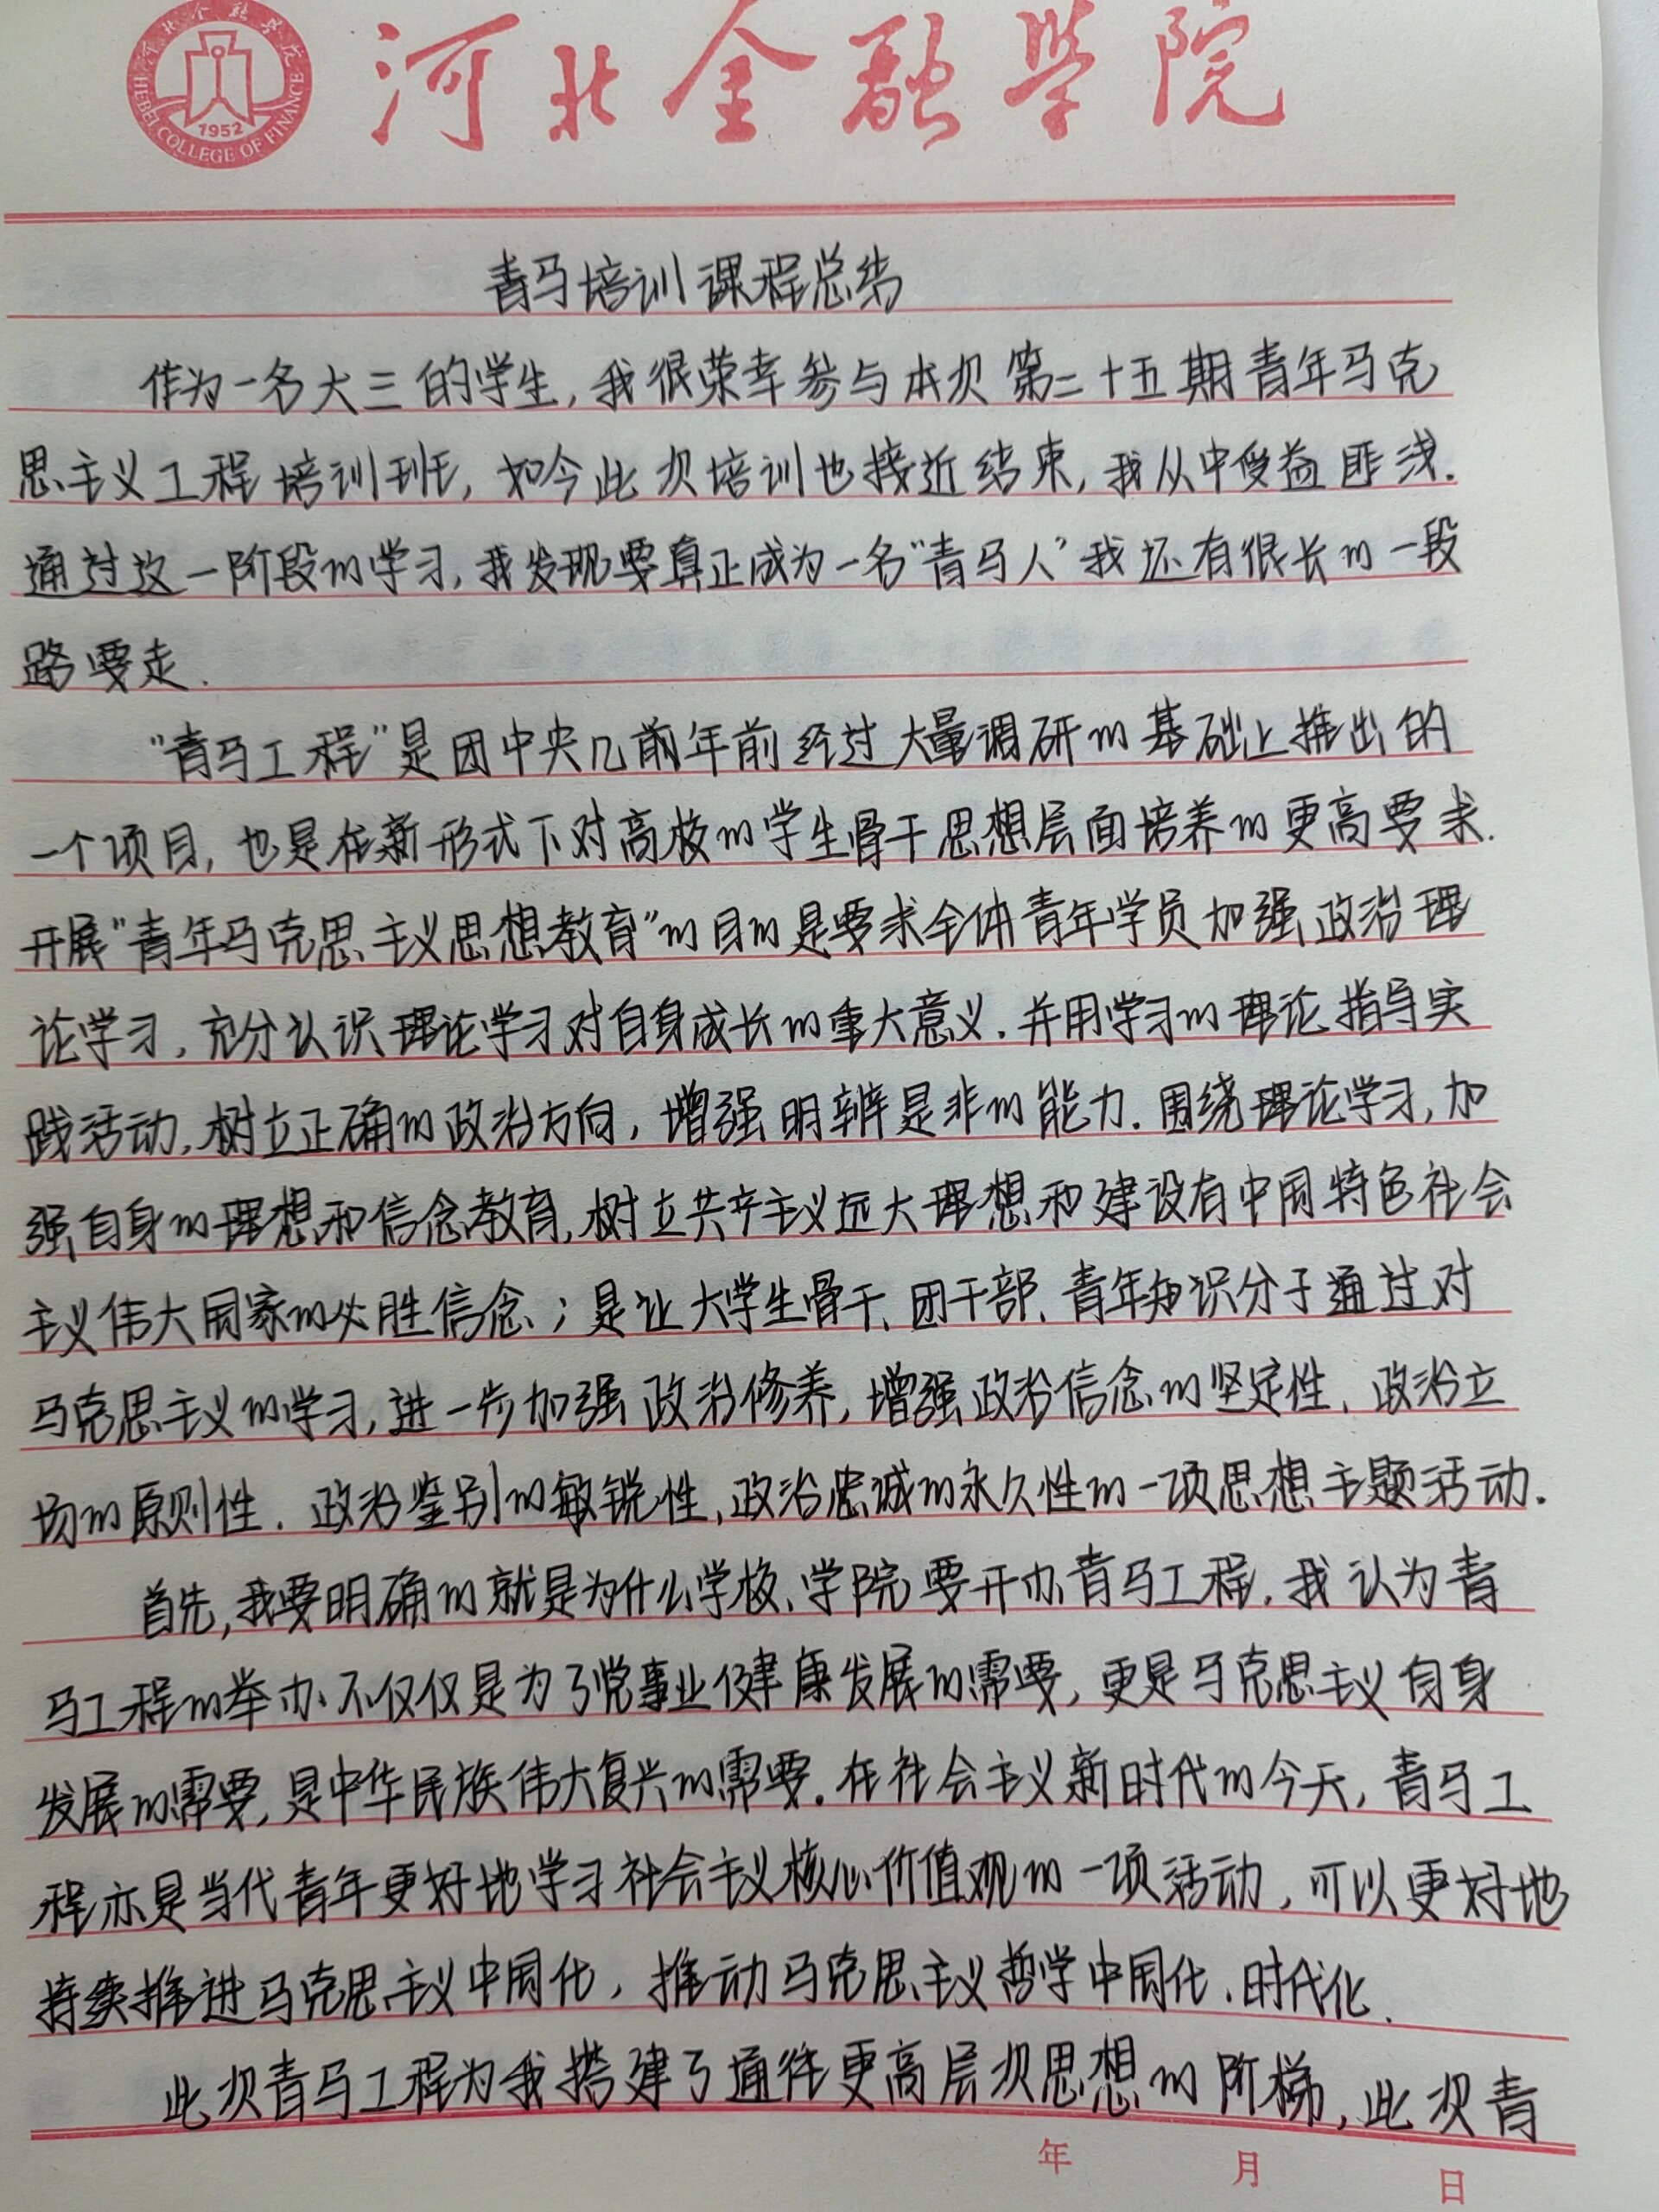 河北金融学院
河北金融学院
HEBEI COLLEGE OF FINANCE
1952
青马培训课程总结
作为一名大三的学生,我很荣幸参与本次第二十五期青年马克
思主义工程培训班,如今此次培训也接近结束,我从中受益匪浅.
通过这一阶段的学习,我发现要真正成为一名“青马人”我还有很长的一段
路要走.
“青马工程”是团中央几前年前经过大量调研的基础上推出的
一个项目,也是在新形式下对高校的学生骨干思想层面培养的更高要求.
开展“青年马克思主义思想教育”的目的是要求全体青年学员加强政治理
论学习,充分认识理论学习对自身成长的重大意义.并用学习的理论指导实
践活动,树立正确的政治方向,增强明辨是非的能力.围绕理论学习,加
强自身的理想和信念教育,树立共产主义远大理想和建设有中国特色社会
主义伟大国家的必胜信念;是让大学生骨干、团干部、青年知识分子通过对
马克思主义的学习,进一步加强政治修养,增强政治信念的坚定性、政治立
场的原则性、政治鉴别的敏锐性,政治忠诚的永久性的一项思想主题活动.
首先,我要明确的就是为什么学校、学院要开办青马工程.我认为青
马工程的举办不仅仅是为了党事业健康发展的需要,更是马克思主义自身
发展的需要,是中华民族伟大复兴的需要.在社会主义新时代的今天,青马工
程亦是当代青年更好地学习社会主义核心价值观的一项活动,可以更好地
持续推进马克思主义中国化,推动马克思主义哲学中国化、时代化.
此次青马工程为我搭建了通往更高层次思想的阶梯,此次青
年 月 日